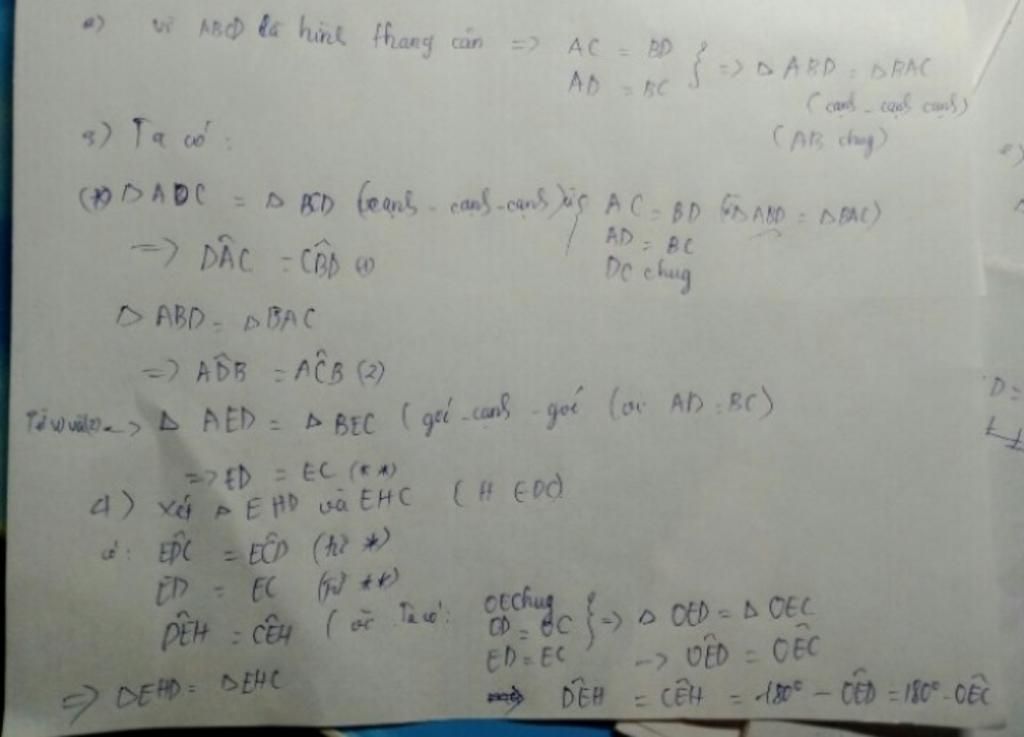 a) vì ABCD là hình thang cân => AC = BD
AD = BC } => Δ ABD = Δ BAC
(cạnh - cạnh cạnh)
(AB chug)
3) Ta có:
(*) Δ ADC = Δ BCD (cạnh - cạnh - cạnh) vì { AC = BD (Δ ABD = Δ BAC)
AD = BC
DC chug
=> DÂC = CB̂D (1)
Δ ABD = Δ BAC
=> AD̂B = AĈB (2)
Từ (1) và (2) => Δ AED = Δ BEC (góc - cạnh - góc (vì AD = BC)
=> ED = EC (**)
4) Xét Δ EHD và EHC (H ∈ DC)
có: ED̂C = EĈD (từ *)
ED = EC (từ **)
DÊH = CÊH (vì Ta có: OE chug
OD = OC
ED = EC } => Δ OED = Δ OEC
-> OÊD = OÊC
=> DÊH = CÊH = 180° - OÊD = 180° - OÊC
=> ΔEHD = ΔEHC